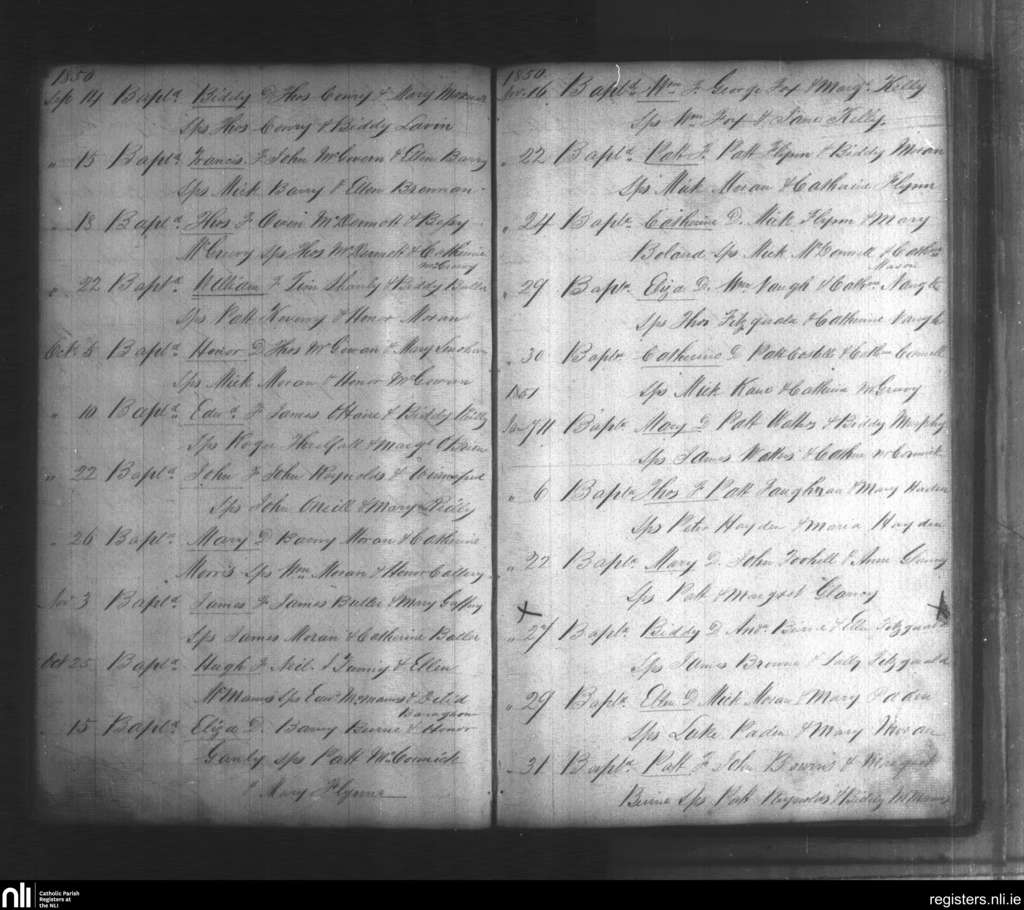 1850
Sep 14 Baptd. Biddy D Thos Conry & Mary Moran
Sps Thos Conry & Biddy Lavin
" 15 Baptd. Francis F John McGovern & Ellen Barry
Sps Mick Barry & Ellen Brennan
" 18 Baptd. Thos F Owin McDermott & Bessy
McGreevy Sps Thos McDermott & Catherine
McGreevy
" 22 Baptd. William F Tim Shanly & Biddy Butler
Sps Patt & Honor Moran
Oct. 5 Baptd. Honor D Thos McGowan & Mary
Sps Mick Moran & Honor McGowan
" 10 Baptd. Edwd. F James OHare & Biddy
Sps Roger & Margt OBrien
" 22 Baptd. John F John Reynolds &
Sps John ONeill & Mary
" 26 Baptd. Mary D Barny Moran & Catherine
Morris Sps Wm Moran & Honor Callery
Nov 3 Baptd. James F James Butler & Mary Gaffny
Sps James Moran & Catherine Butler
Oct 25 Baptd. Hugh F Neil & Ellen
McManus Sps Edw McManus & Delia
" 15 Baptd. Eliza D. Barny Beirne & Honor
Ganly Sps Patt McCormick
& Mary Flynne
1850.
Nov. 16 Baptd. Wm F George Fox & Margt. Kelly
Sps Wm Fox & Jane Kelly.
" 22 Baptd. Patt F. Patt Flynn & Biddy Moran
Sps Mick Moran & Catharine Flynn
" 24 Baptd. Catherine D. Mick Flynn & Mary
Boland Sps Mick McDonnell & Cathne
Mason
" 29 Baptd. Eliza D. Wm Naugh & Cathne Naugh
Sps Thos Fitzgerald & Catherine Naugh
" 30 Baptd. Catherine D Patt Costello & Cathne
1851 Sps Mick Kane & Catherine McGreevy
Jan 11 Baptd. Mary D Patt Watkins & Biddy Murphy
Sps James & Cathne McCormick
" 6 Baptd. Thos F Patt & Mary Haden
Sps Peter Hayden & Maria Hayden
" 22 Baptd. Mary D. John Toohill & Anne
Sps Patt & Margret Clancy
" 27 Baptd. Biddy D Andw. Birne & Ellen Fitzgerald
Sps James Browne & Sally Fitzgerald
" 29 Baptd. Ellen D Mick Moran & Mary Paden
Sps Luke Paden & Mary Moran
" 31 Baptd. Patt F John Bowens & Margret
Beirne Sps Patt Reynolds & Biddy McManus
nli
Catholic Parish
Registers at
the NLI
registers.nli.ie